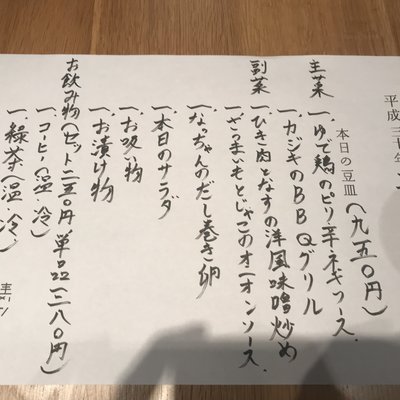 平成三十年
本日の豆皿(九五〇円)
主菜
一、ゆで鶏のピリ辛ネギソース
一、カジキのBBQグリル
副菜
一、ひき肉となすの洋風味噌炒め
一、さつまいもとじゃこのオニオンソース
一、なっちゃんのだし巻き卵
一、本日のサラダ
一、お吸い物
一、お漬け物
お飲み物(セット二五〇円 単品二八〇円)
一、コーヒー(温、冷)
一、緑茶(温、冷)